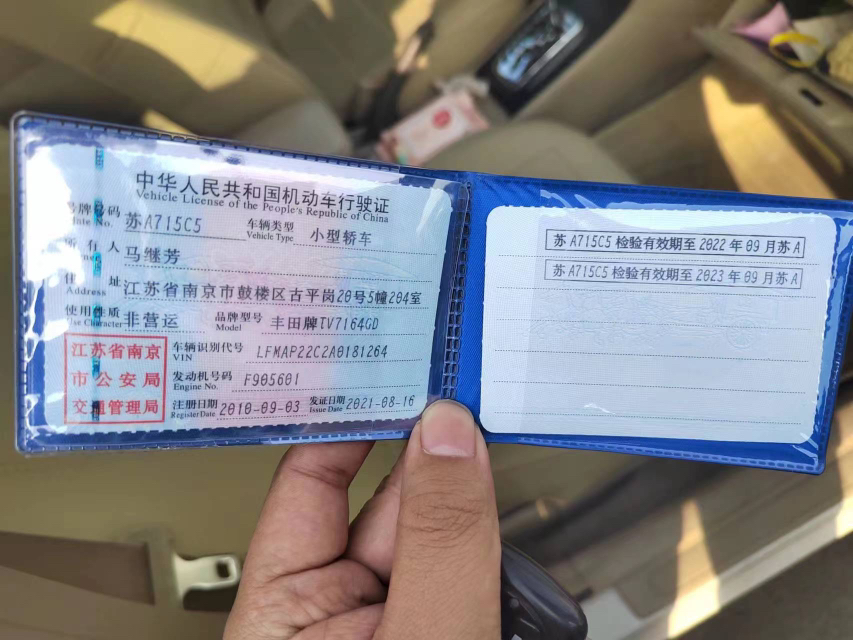 中华人民共和国机动车行驶证
Vehicle License of the People's Republic of China
号牌号码 苏A715C5 车辆类型 小型轿车
Plate No. Vehicle Type
所有人 马继芳
Owner
住址 江苏省南京市鼓楼区古平岗20号5幢204室
Address
使用性质 非营运 品牌型号 丰田牌TV7164GD
Use Character Model
江苏省南京
市公安局
交通管理局
车辆识别代号 LFMAP22C2A0181264
VIN
发动机号码 F905601
Engine No.
注册日期 2010-09-03 发证日期 2021-08-16
Register Date Issue Date
苏A715C5 检验有效期至2022年09月苏A
苏A715C5 检验有效期至2023年09月苏A